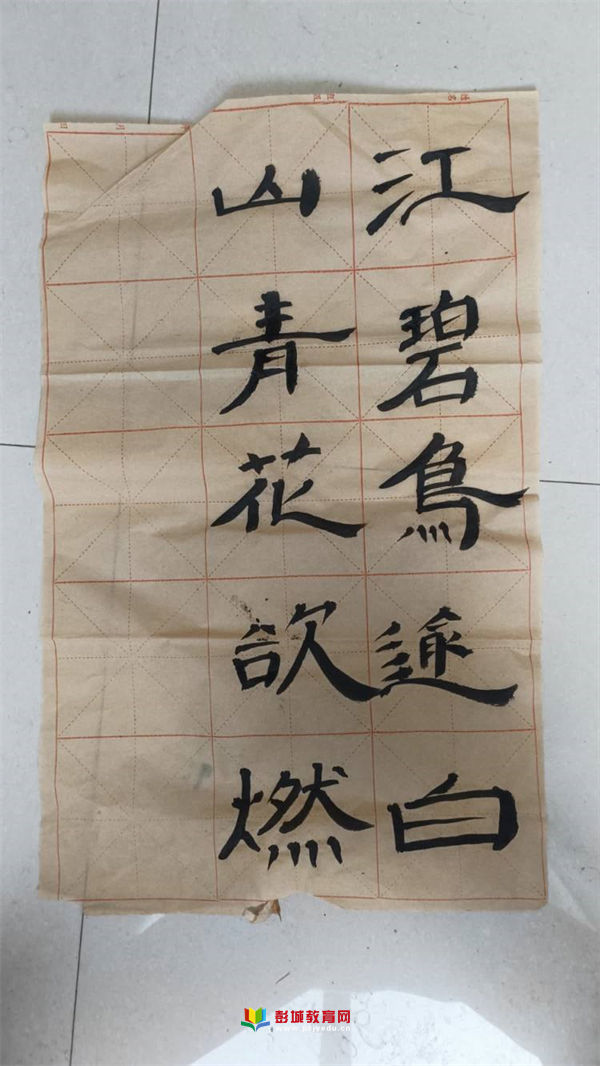 江碧鳥逾白
山青花欲燃
彭城教育网